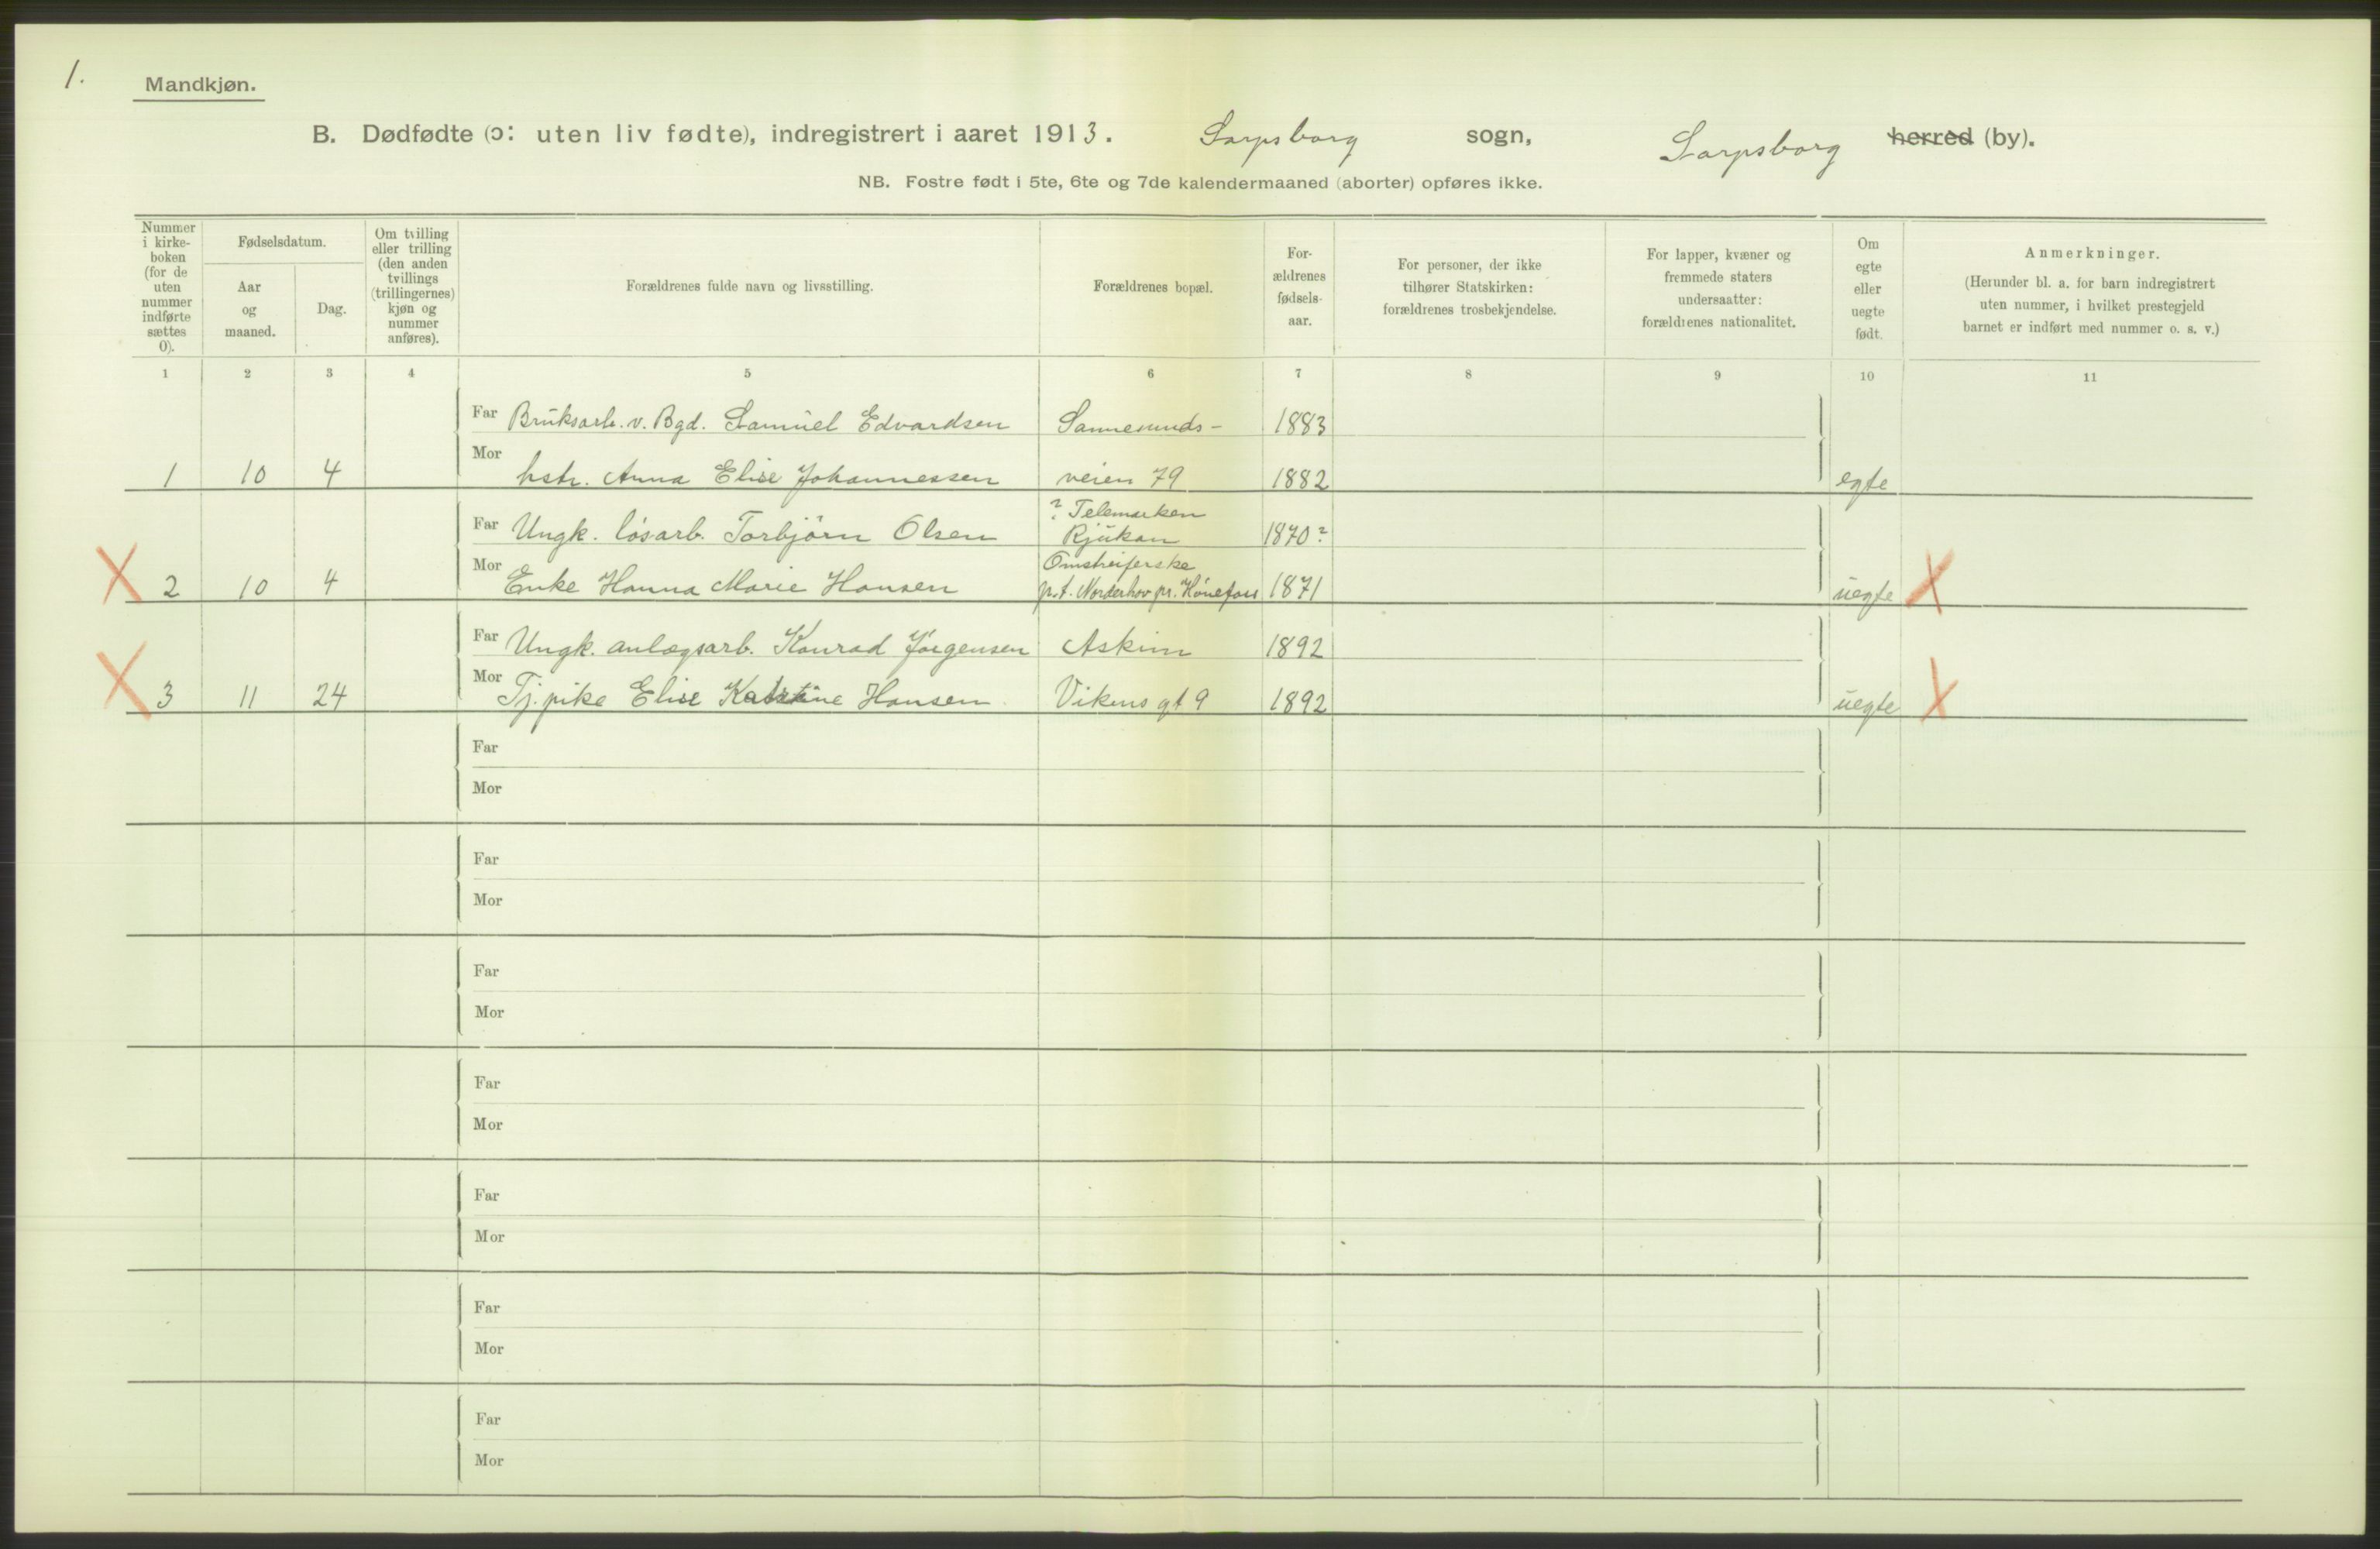 1.
Mandkjøn.
B. Dødfødte (ɔ: uten liv fødte), indregistrert i aaret 1913. Sarpsborg sogn, Sarpsborg herred (by).
NB. Fostre født i 5te, 6te og 7de kalendermaaned (aborter) opføres ikke.
Nummer
i kirke-
boken
(for de
uten
nummer
indførte
sættes
0).
Fødselsdatum.
Aar
og
maaned.
Dag.
Om tvilling
eller trilling
(den anden
tvillings
(trillingernes)
kjøn og
nummer
anføres).
Forældrenes fulde navn og livsstilling.
Forældrenes bopæl.
For-
ældrenes
fødsels-
aar.
For personer, der ikke
tilhører Statskirken:
forældrenes trosbekjendelse.
For lapper, kvæner og
fremmede staters
undersaatter:
forældrenes nationalitet.
Om
egte
eller
uegte
født.
Anmerkninger.
(Herunder bl. a. for barn indregistrert
uten nummer, i hvilket prestegjeld
barnet er indført med nummer o. s. v.)
1 2 3 4 5 6 7 8 9 10 11
Far Bruksarb. v. Bgd. Samuel Edvardsen Sannesunds- 1883
1 10 4 Mor hstr. Anna Elise Johannessen veien 79 1882 egte
? Telemarken
Far Ungk. løsarb. Torbjørn Olsen Rjukan 1870?
Omstreiferske
X 2 10 4 Mor Enke Hanna Marie Hansen p.t. Norderhov pr. Hønefoss 1871 uegte X
Far Ungk. anlægsarb. Konrad Jørgensen Askim 1892
X 3 11 24 Mor Tj.pike Elise Hansen Vikens gt 9 1892 uegte X
Far
Mor
Far
Mor
Far
Mor
Far
Mor
Far
Mor
Far
Mor
Far
Mor